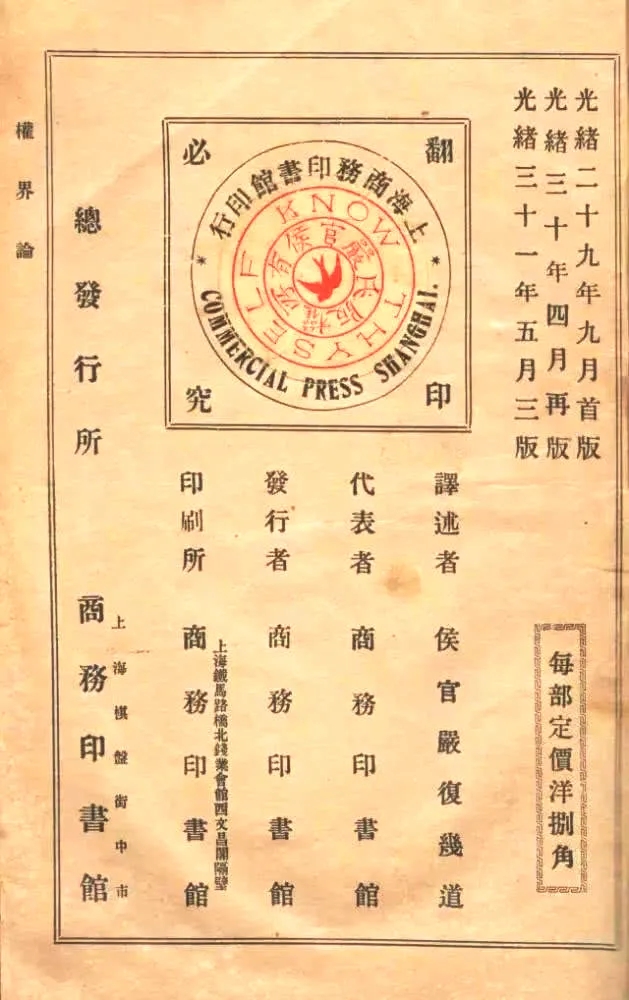 光緒二十九年九月首版
光緒三十年四月再版
光緒三十一年五月三版
每部定價洋捌角
翻印必究
上海商務印書館印行
COMMERCIAL PRESS SHANGHAI.
KNOW THYSELF
侯官嚴氏版權所有
譯述者 侯官嚴復幾道
代表者 商務印書館
發行者 商務印書館
上海鐵馬路橋北錢業會館西文昌閣隔壁
印刷所 商務印書館
上海棋盤街中市
總發行所 商務印書館
權界論